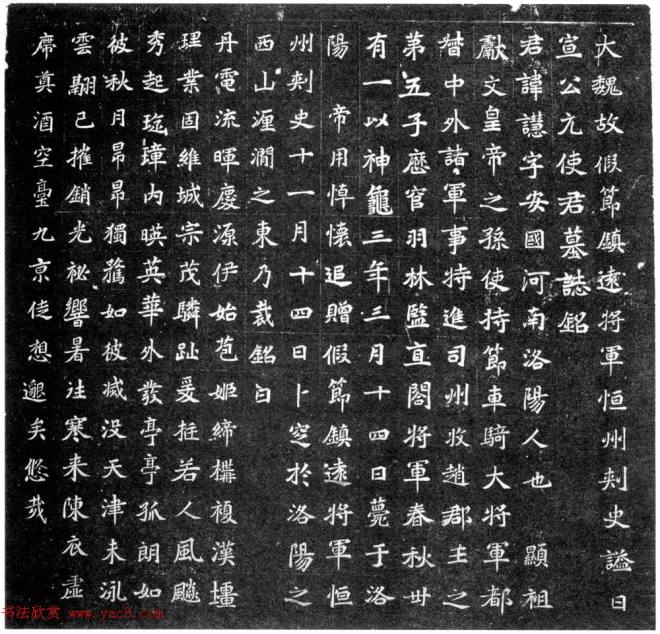 大魏故假節鎮遠將軍恒州刾史謚曰
宣公元使君墓誌銘
君諱譿字安國河南洛陽人也　顯祖
獻文皇帝之孫使持節車騎大將軍都
督中外諸軍事特進司州牧趙郡王之
第五子歷官羽林監直閤將軍春秋卅
有一以神龜三年三月十四日薨于洛
陽　帝用悼懷追贈假節鎮遠將軍恒
州刾史十一月十四日卜窆於洛陽之
西山瀍澗之東乃裁銘曰
丹電流暉慶源伊始苞姬締構複漢壃
理業固維城宗茂驎趾爰挺若人風飈
秀起琁璋內暎英華外發亭亭孤朗如
彼秋月昂昂獨騖如彼滅没天津未泳
雲翮已摧銷光祕響暑往寒来陳衣虛
席奠酒空臺九京徒想邈矣悠哉
书法欣赏 www.yac8.com